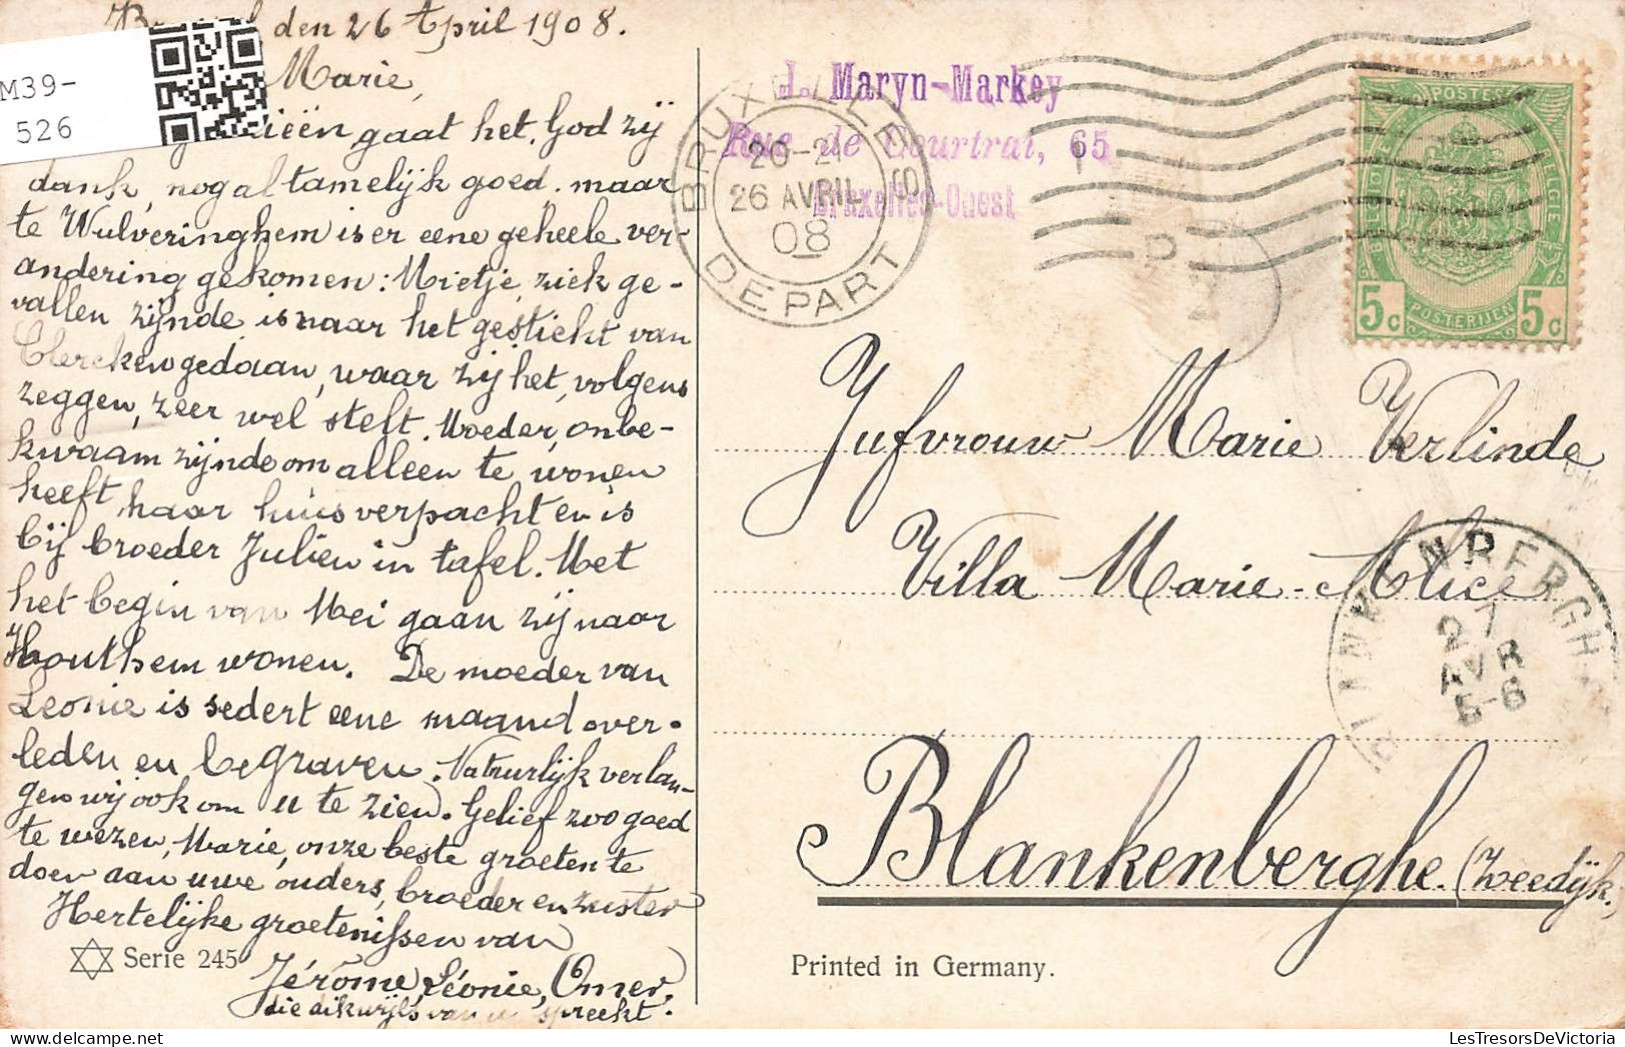 den 26 April 1908.
Marie,
M39-
526
gaat het, God zij
dank, nog al tamelijk goed. maar
te Wulveringhem is er eene geheele ver-
andering gekomen: Mietje, ziek ge-
vallen zijnde is naar het gesticht van
Clercken gedaan, waar zij het, volgens
zeggen, zeer wel stelt. Moeder, onbe-
kwaam zijnde om alleen te wonen
heeft haar huis verpacht en is
bij broeder Julien in tafel. Met
het begin van Mei gaan zij naar
Houthem wonen. De moeder van
Leonie is sedert eene maand over-
leden en begraven. Natuurlijk verlan-
gen wij ook om u te zien. Gelief zoo goed
te wezen, Marie, onze beste groeten te
doen aan uwe ouders, broeder en zuster
Hertelijke groetenissen van
Jérôme, Léonie, Omer,
die dikwijls van u spreekt.
Serie 245
J. Maryn-Markey
Rue de Courtrai, 65
Bruxelles-Ouest
BRUXELLES
20-21
26 AVRIL
08
DEPART
POSTES
BELGIQUE
BELGIE
5c
POSTERIJEN
5c
Jufvrouw Marie Verlinde
Villa Marie-Alice
BLANKENBERGHE
27
AVR
5-6
Blankenberghe. (Zeedijk.)
Printed in Germany.
LesTresorsDeVictoria